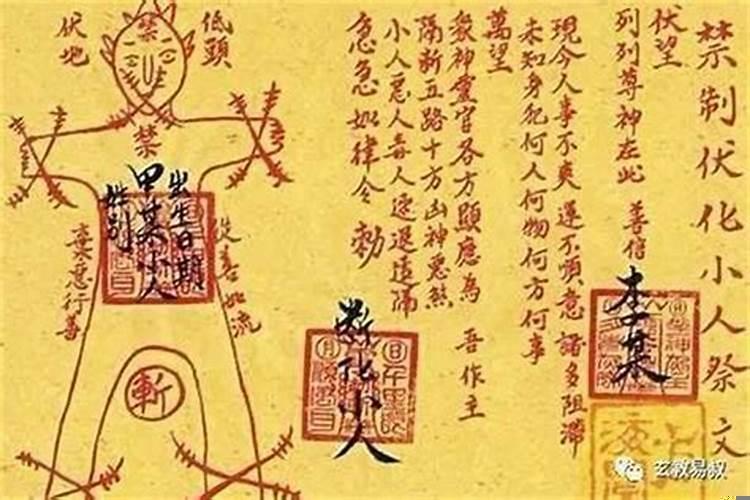 禁制伏化小人祭文
伏望
列列尊神在此 善信
李某
現今人事不爽運不順意諸多阻滯
未知身犯何人何物何方何事
萬望
眾神靈官各方顯應為 吾作主
隔斬五路十方凶神惡煞
小人惡人毒人速退遠隔
急急如律令 勅
斷化小人
低頭
伏地
禁
禁
出生日期
甲某小人
性別
從善如流
棄惡行善
斬
玄教易叔